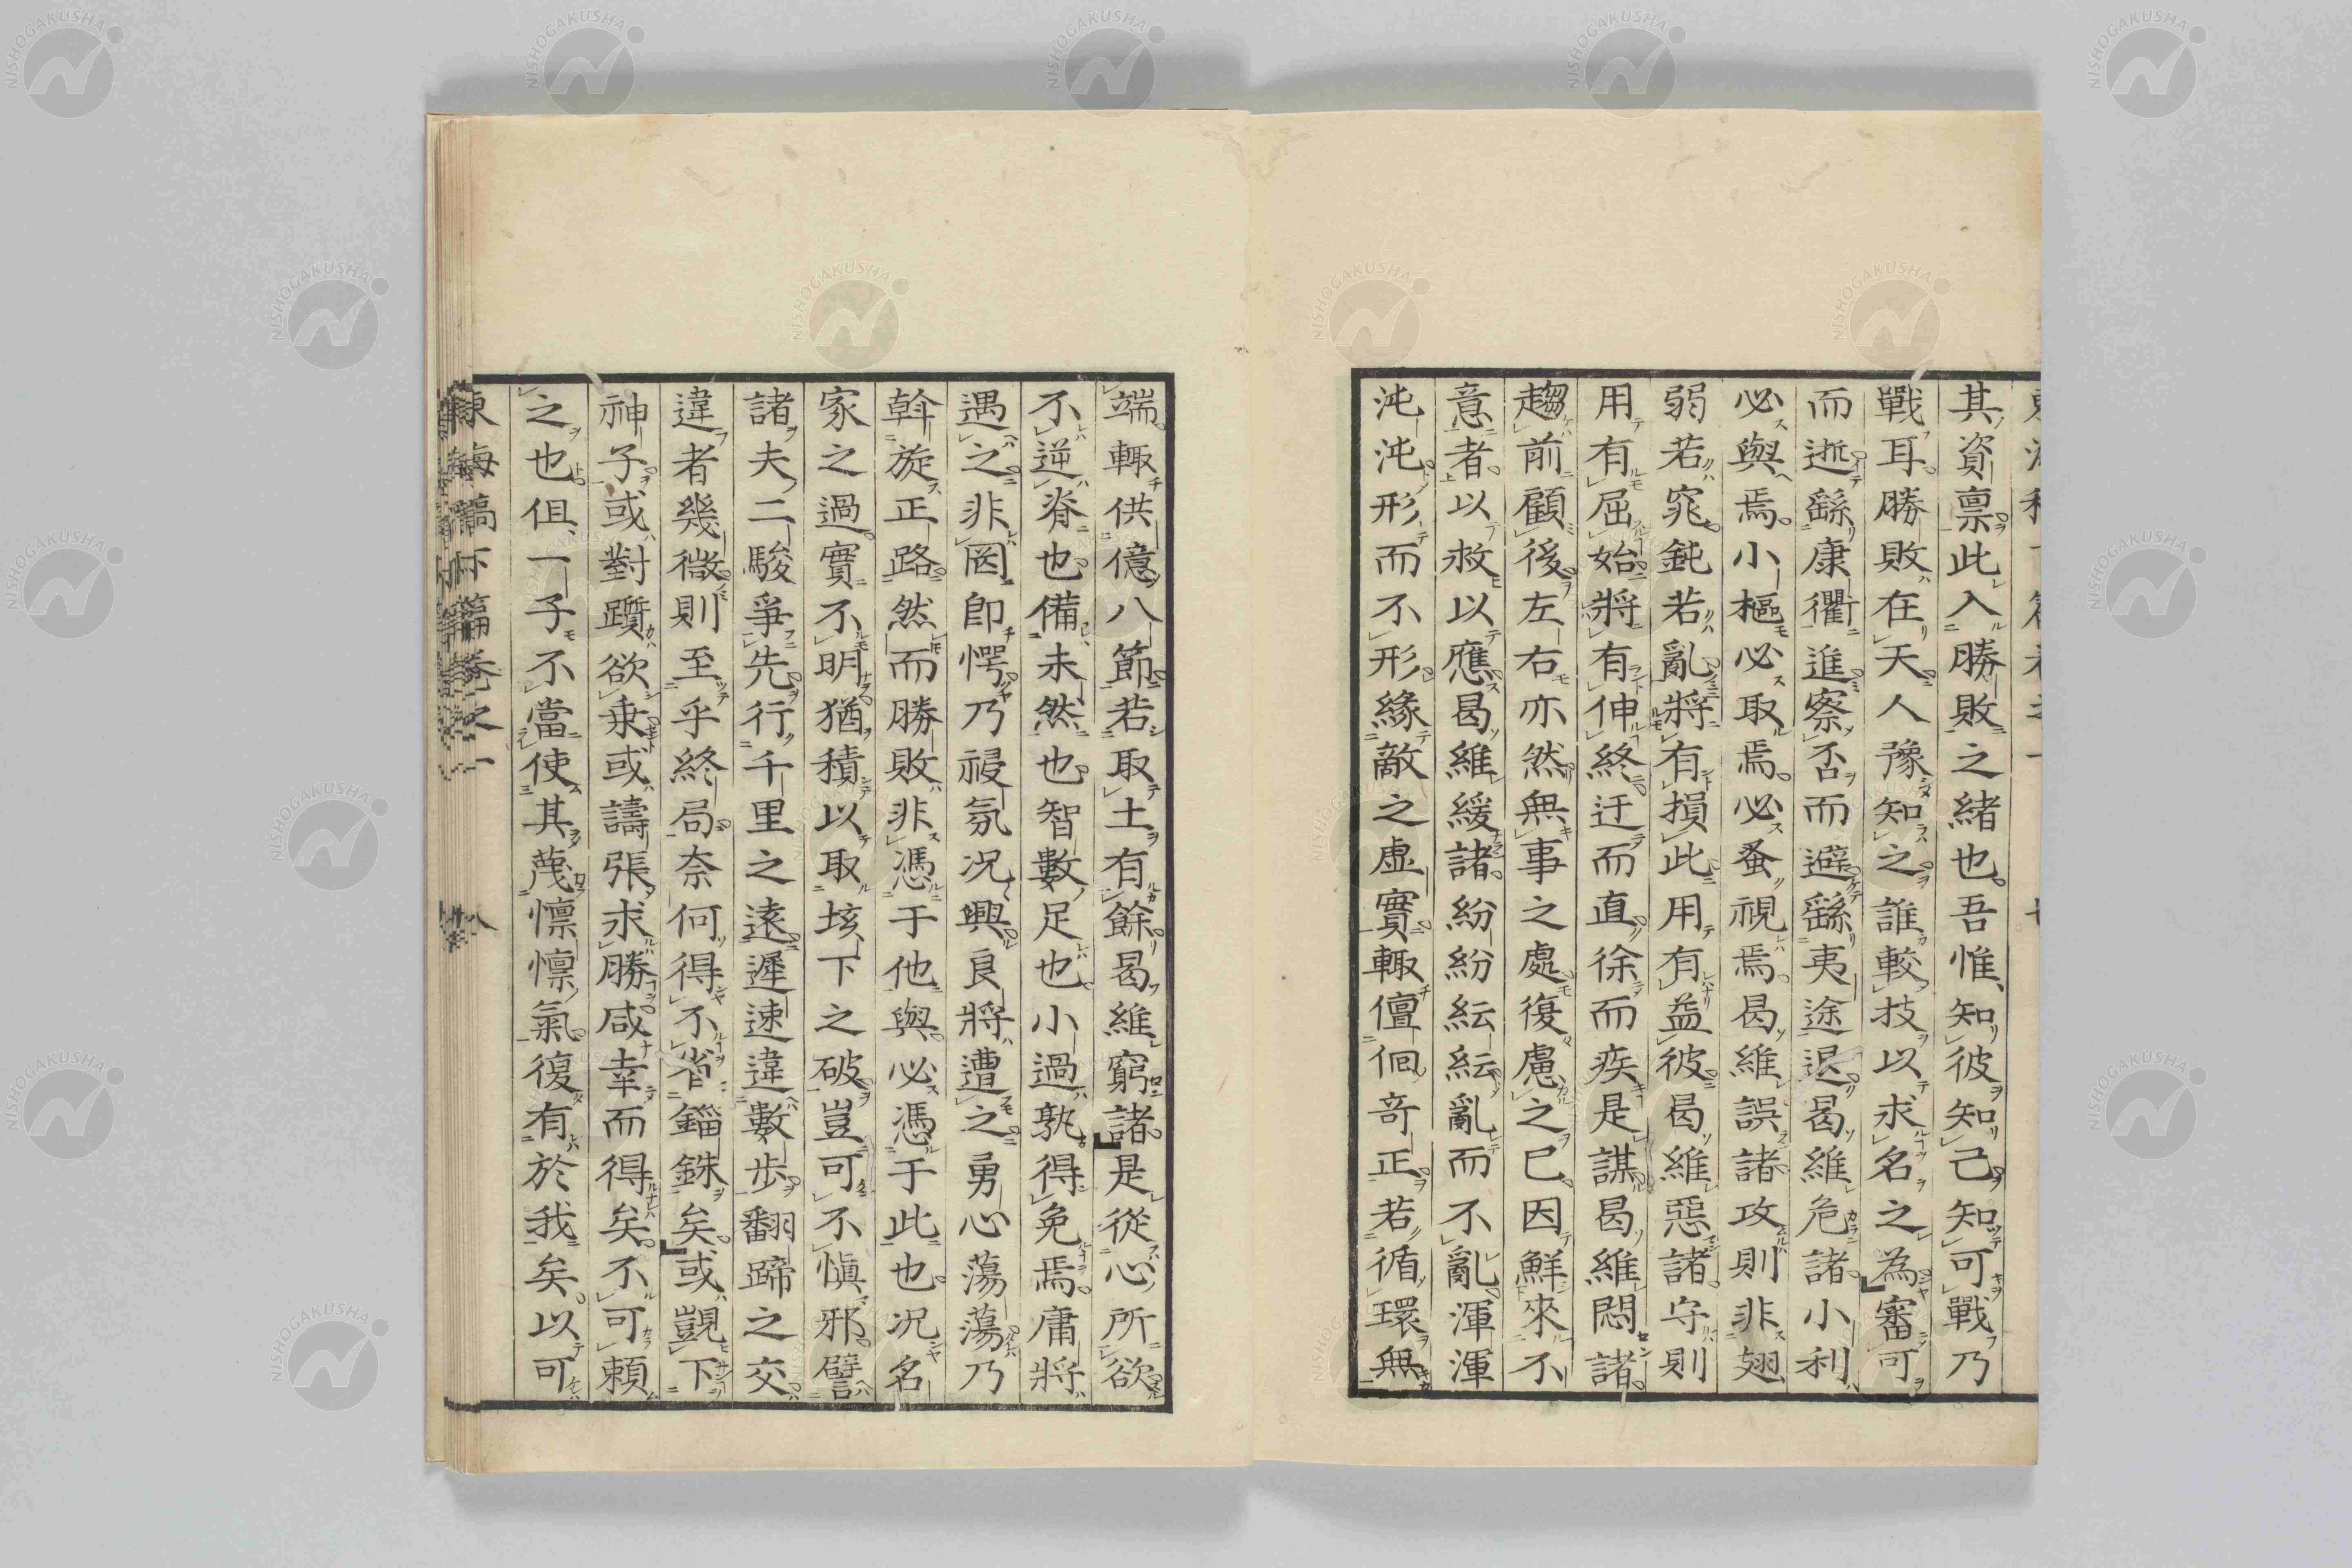 其資稟此入勝敗之緒也吾惟知彼知己知可戰乃
戰耳勝敗在天人豫知之誰較技以求名之為審可
而逝繇康衢進察否而避繇夷途退曷維危諸小利
必與焉小樞必取焉必蚤視焉曷維誤諸攻則非翅
弱若窕鈍若亂將有損此用有益彼曷維惡諸守則
用有屈始將有伸終迂而直徐而疾是謀曷維悶諸
趨前顧後左右亦然無事之處復慮之已因鮮來不
意者以救以應曷維緩諸紛紛紜紜亂而不亂渾渾
沌沌形而不形緣敵之虛實輙儃佪竒正若循環無
端輙供億八節若取土有餘曷維窮諸是從心所欲
不逆脊也備未然也智數足也小過孰得免焉庸將
遇之非罔即愕乃祲氛况興良將遭之勇心蕩蕩乃
斡旋正路然而勝敗非憑于他與必憑于此也况名
家之過實不明猶積以取垓下之破豈可不愼邪譬
諸夫二駿爭先行千里之遠遲速違數步翻蹄之交
違者幾微則至乎終局奈何得不省錙銖矣或覬下
神子或對躓欲乗或譸張求勝咸幸而得矣不可頼
之也但一子不當使其蔑懍懍氣復有於我矣以可
東海稿下篇卷之一
八
NISHOGAKUSHA